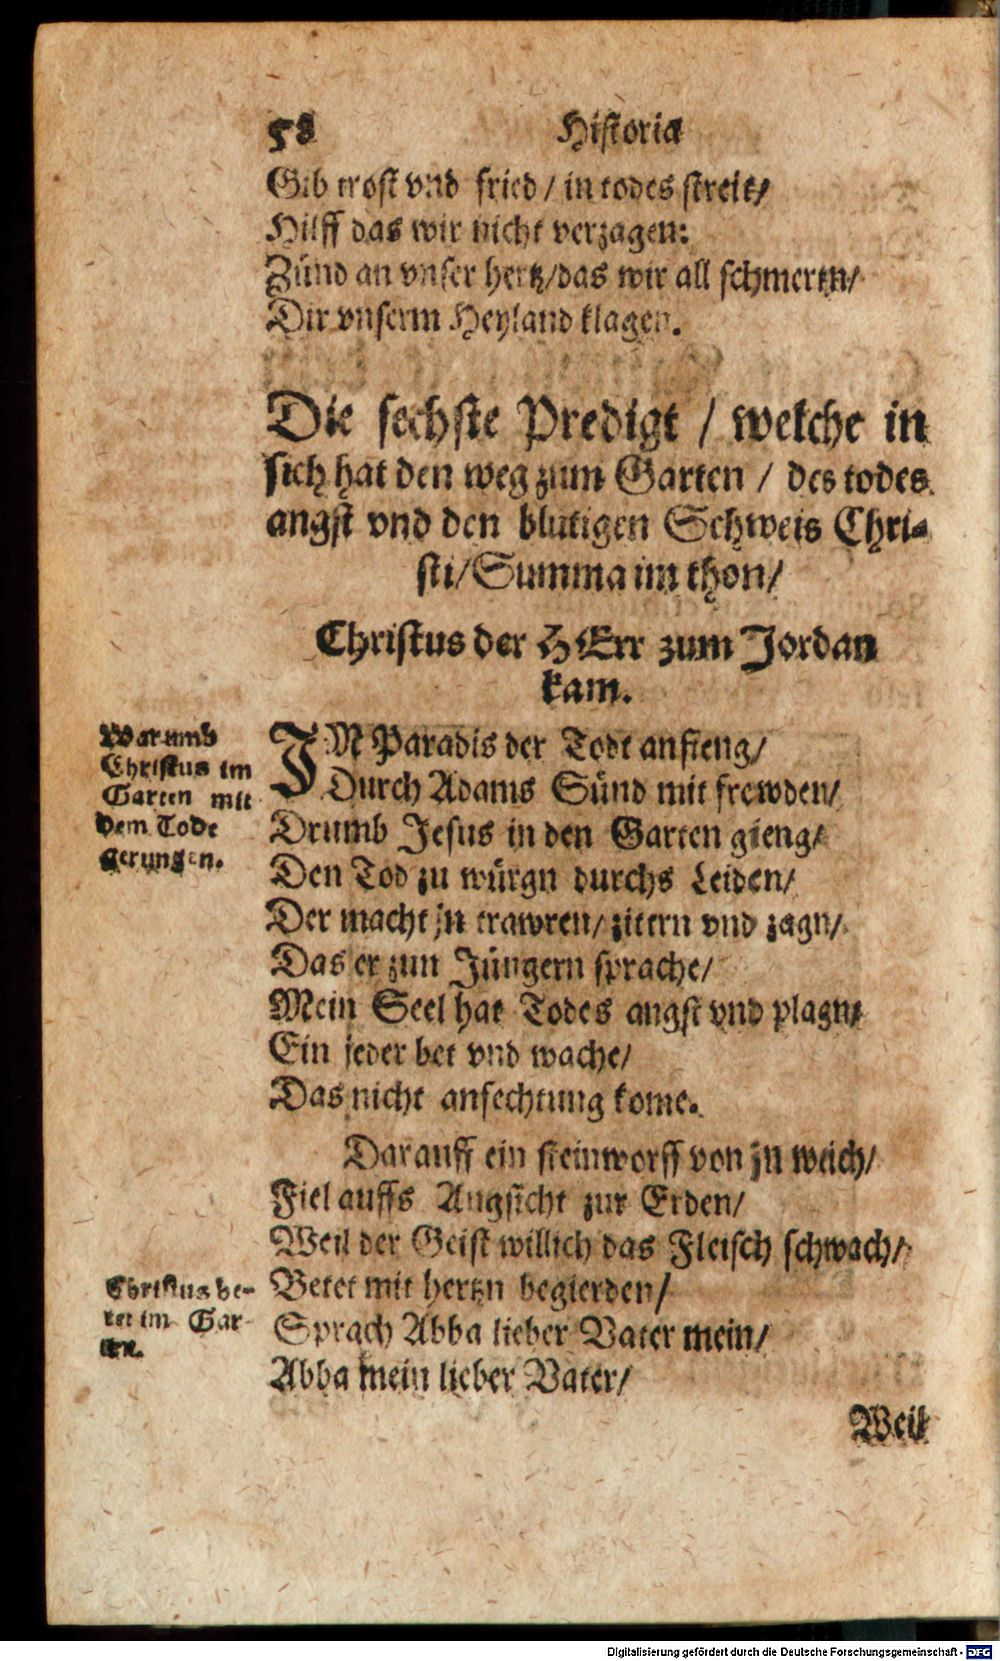 58 Historia
Gib trost vnd fried / in todes streit /
Hilff das wir nicht verzagen:
Zünd an vnser hertz / das wir all schmertzn /
Dir vnserm Heyland klagen.
Die sechste Predigt / welche in
sich hat den weg zum Garten / des todes
angst vnd den blutigen Schweis Chri-
sti / Summa im thon /
Christus der HErr zum Jordan
kam.
Warumb
Christus im
Garten mit
dem Tode
gerungen.
IN Paradis der Todt anfieng /
Durch Adams Sünd mit frewden /
Drumb Jesus in den Garten gieng /
Den Tod zu würgn durchs Leiden /
Der macht jn trawren / zitern vnd zagn /
Das er zun Jüngern sprache /
Mein Seel hat Todes angst vnd plagn /
Ein jeder bet vnd wache /
Das nicht anfechtung kome.
Darauff ein steinworff von jn weich /
Fiel auffs Angsicht zur Erden /
Weil der Geist willich das Fleisch schwach /
Christus be-
tet im Gar-
ten.
Betet mit hertzn begierden /
Sprach Abba lieber Vater mein /
Abba mein lieber Vater /
Weil
Digitalisierung gefördert durch die Deutsche Forschungsgemeinschaft - DFG